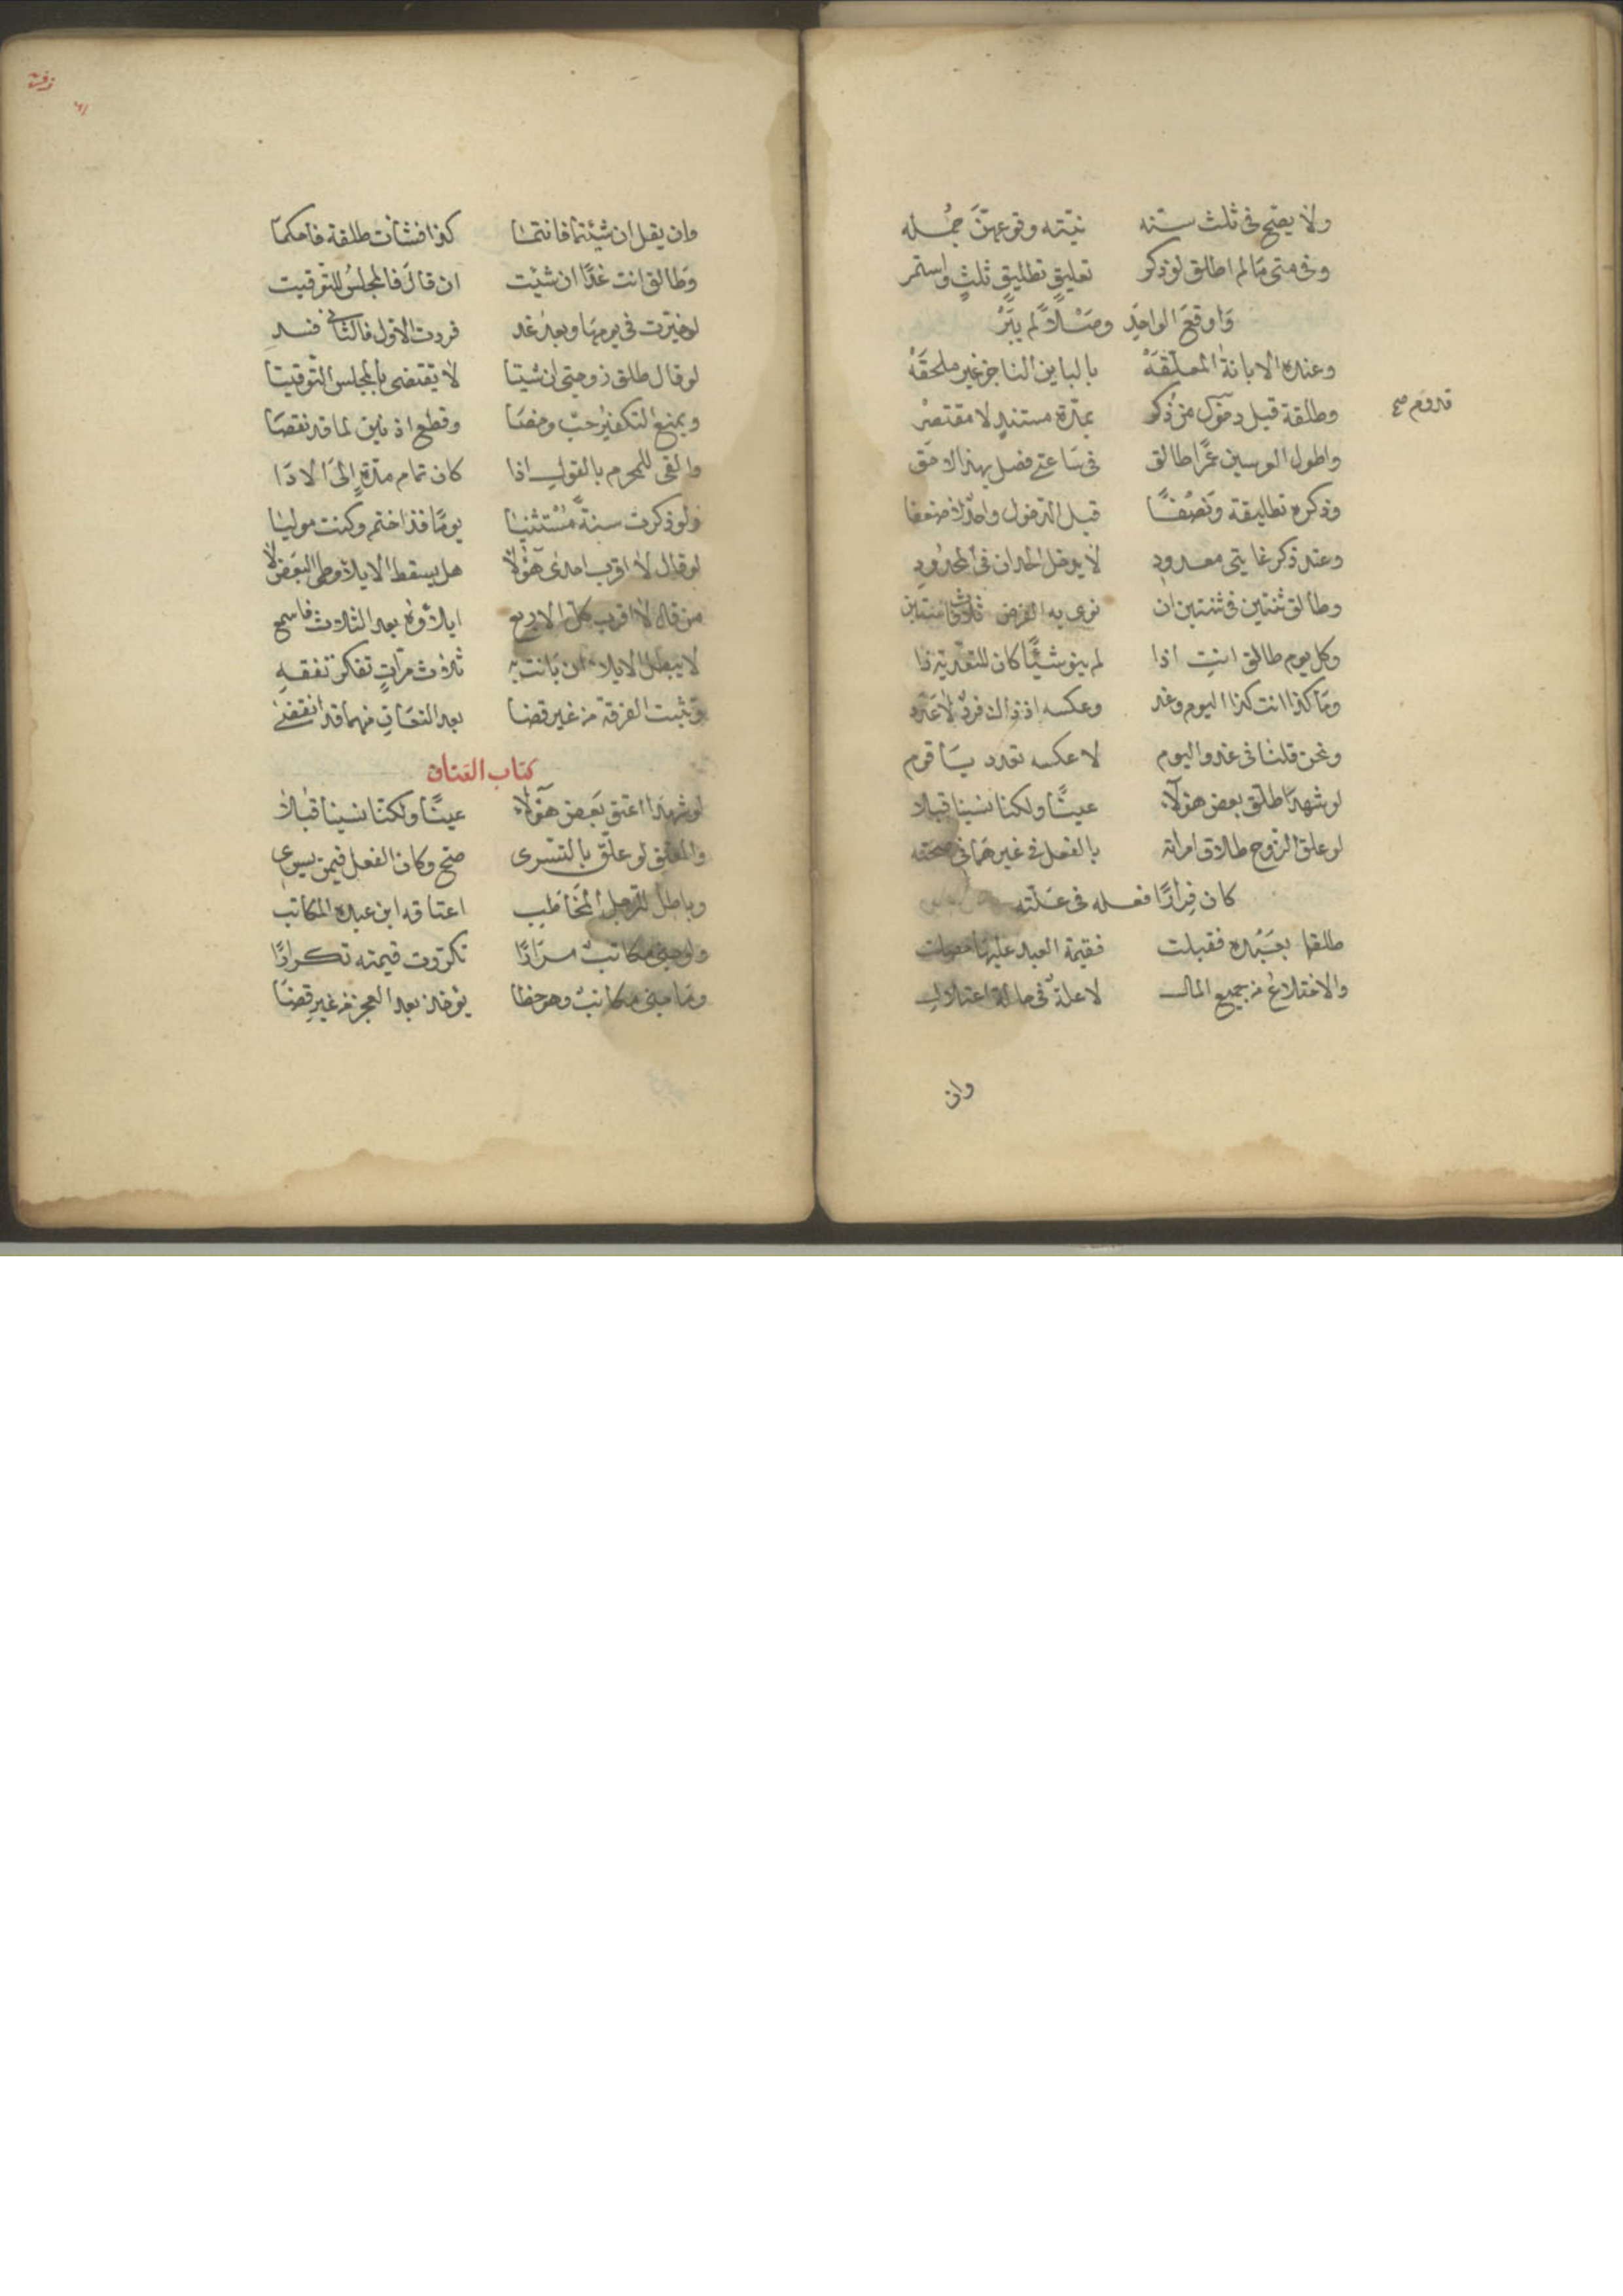 ولا يصح في ثلث سنه نيته وقوعهن جمله
وفي متى ما لم اطلق لو ذكر تعليق تطليق ثلث واستمر
واوقع الواحد وصلا لم يبر
وعنده الابانة المعلقه بالباين الناجز غير ملحقه
وطلقة قبل من ذكر بمدة مستند لا مقتصر
قدوم صح
واطول العرسين عمرا طالق في ساعتي فصل بهذا لاحق
وذكره تطليقة ونصفا قبل الدخول واحد لا ضعفا
وعند ذكر غايتي معدود لا يدخل الحدان في المحدود
وطالق ثنتين في ثنتين ان نوى به الفرض ثلاث
وكل يوم طالق انت اذا لم ينو شيئا كان للتعديد ذا
وما كذا انت كذا اليوم وغد وعكسه اذ ذاك فرد لا عدد
ونحن قلنا في غد واليوم لا عكسه تعدد يا قوم
لو شهدا طلق بعض هؤلاء عينا ولكنا نسينا قبلا
لو علق الزوج طلاق امراته بالفعل في غيرهما في صحته
كان فرارا فعله في علته
طلقها بعبده فقبلت فقيمة العبد عليها
والاختلاع من جميع المال لا علة في حالة اعتلال
وان
وان يقل ان شئتما فانتما كذا فشات طلقة فاحكما
وطالق انت غدا ان شئت ان قال فالمجلس للتوقيت
لو خيرت في يومها وبعد غد فردت الاول فالثاني فسد
لو قال طلق زوجتي ان شيتا لا يقتضي بالمجلس التوقيتا
ويمنع التكفير حب وخصا وقطع اذنين لما قد نقصا
والفي للمحرم بالقول اذا كان تمام مدة الى الادا
ولو ذكرت سنة مستثنيا يوما فذا ختم وكنت موليا
لو قال لا اقرب احدى هؤلا هل يسقط الايلا وطي البعض لا
من قال لا اقرب كل الاربع ايلاؤه بعد الثلاث فاسمع
لا يبطل الايلاء ان بانت به ثلاث مرات تفكر تفقه
وتثبت الفرقة من غير قضا بعد التعان منهما قد انقضى
كتاب العتاق
لو شهدا اعتق بعض هؤلاء عينا ولكنا نسينا قبلا
والعتق لو علق بالتسرى صح وكان الفعل فيمن يسرى
وباطل للرجل المخاطب اعتاقه ابن عبده المكاتب
ولو جنى مكاتب مرارا تكررت قيمته تكرارا
وما جنى مكاتب وهو خطا يؤخذ بعد العجز من غير قضا